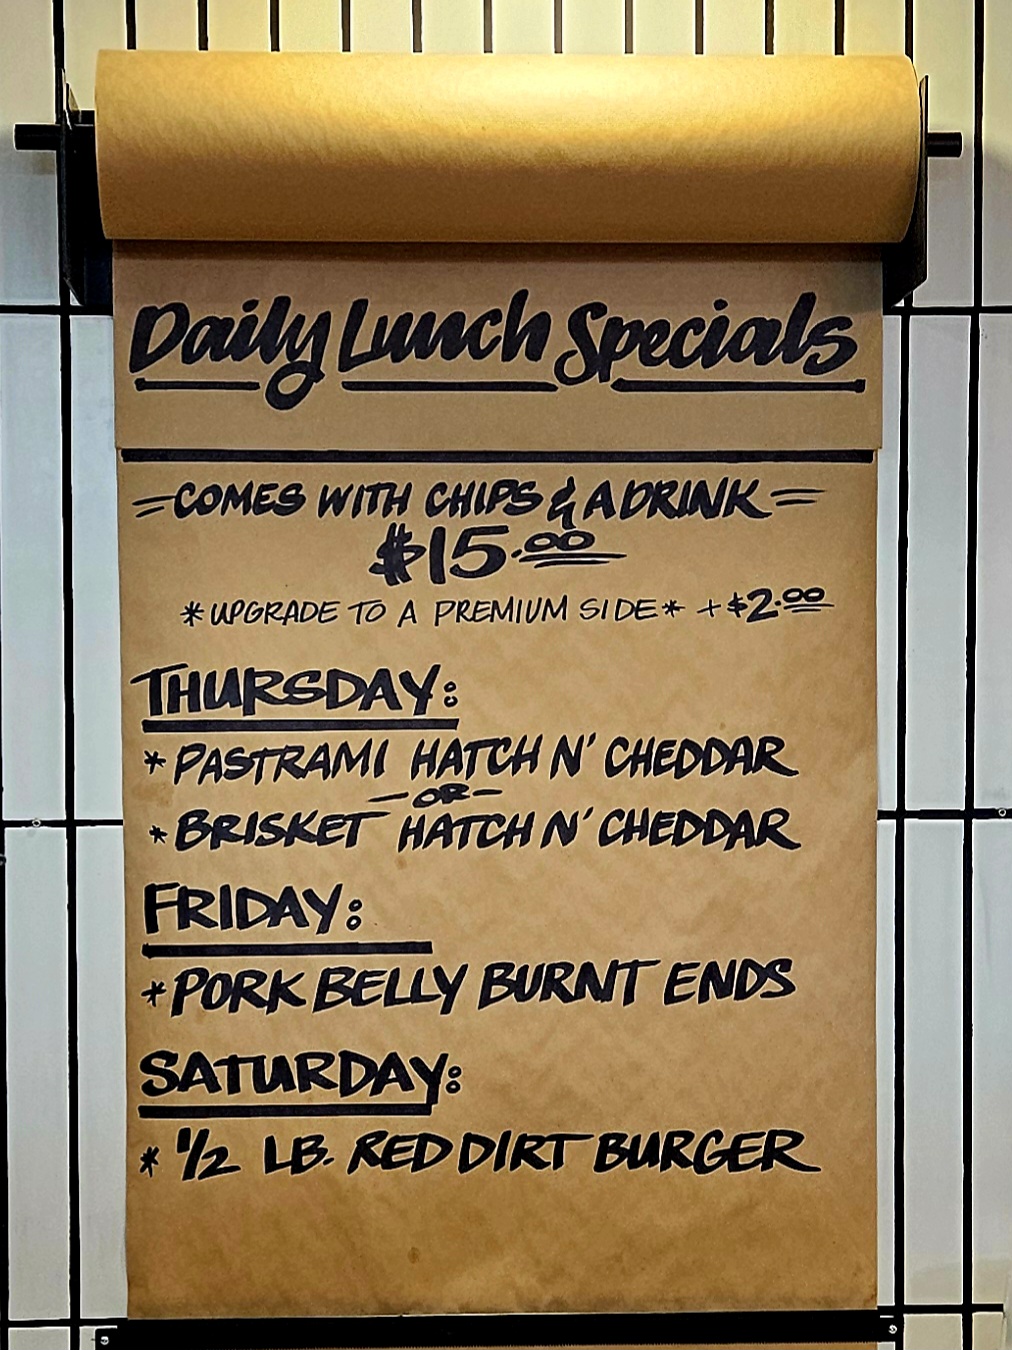 Daily Lunch Specials
=COMES WITH CHIPS & A DRINK=
$15.00
*UPGRADE TO A PREMIUM SIDE* +$2.00
THURSDAY:
* PASTRAMI HATCH N' CHEDDAR
-OR-
* BRISKET HATCH N' CHEDDAR
FRIDAY:
* PORK BELLY BURNT ENDS
SATURDAY:
* 1/2 LB. RED DIRT BURGER